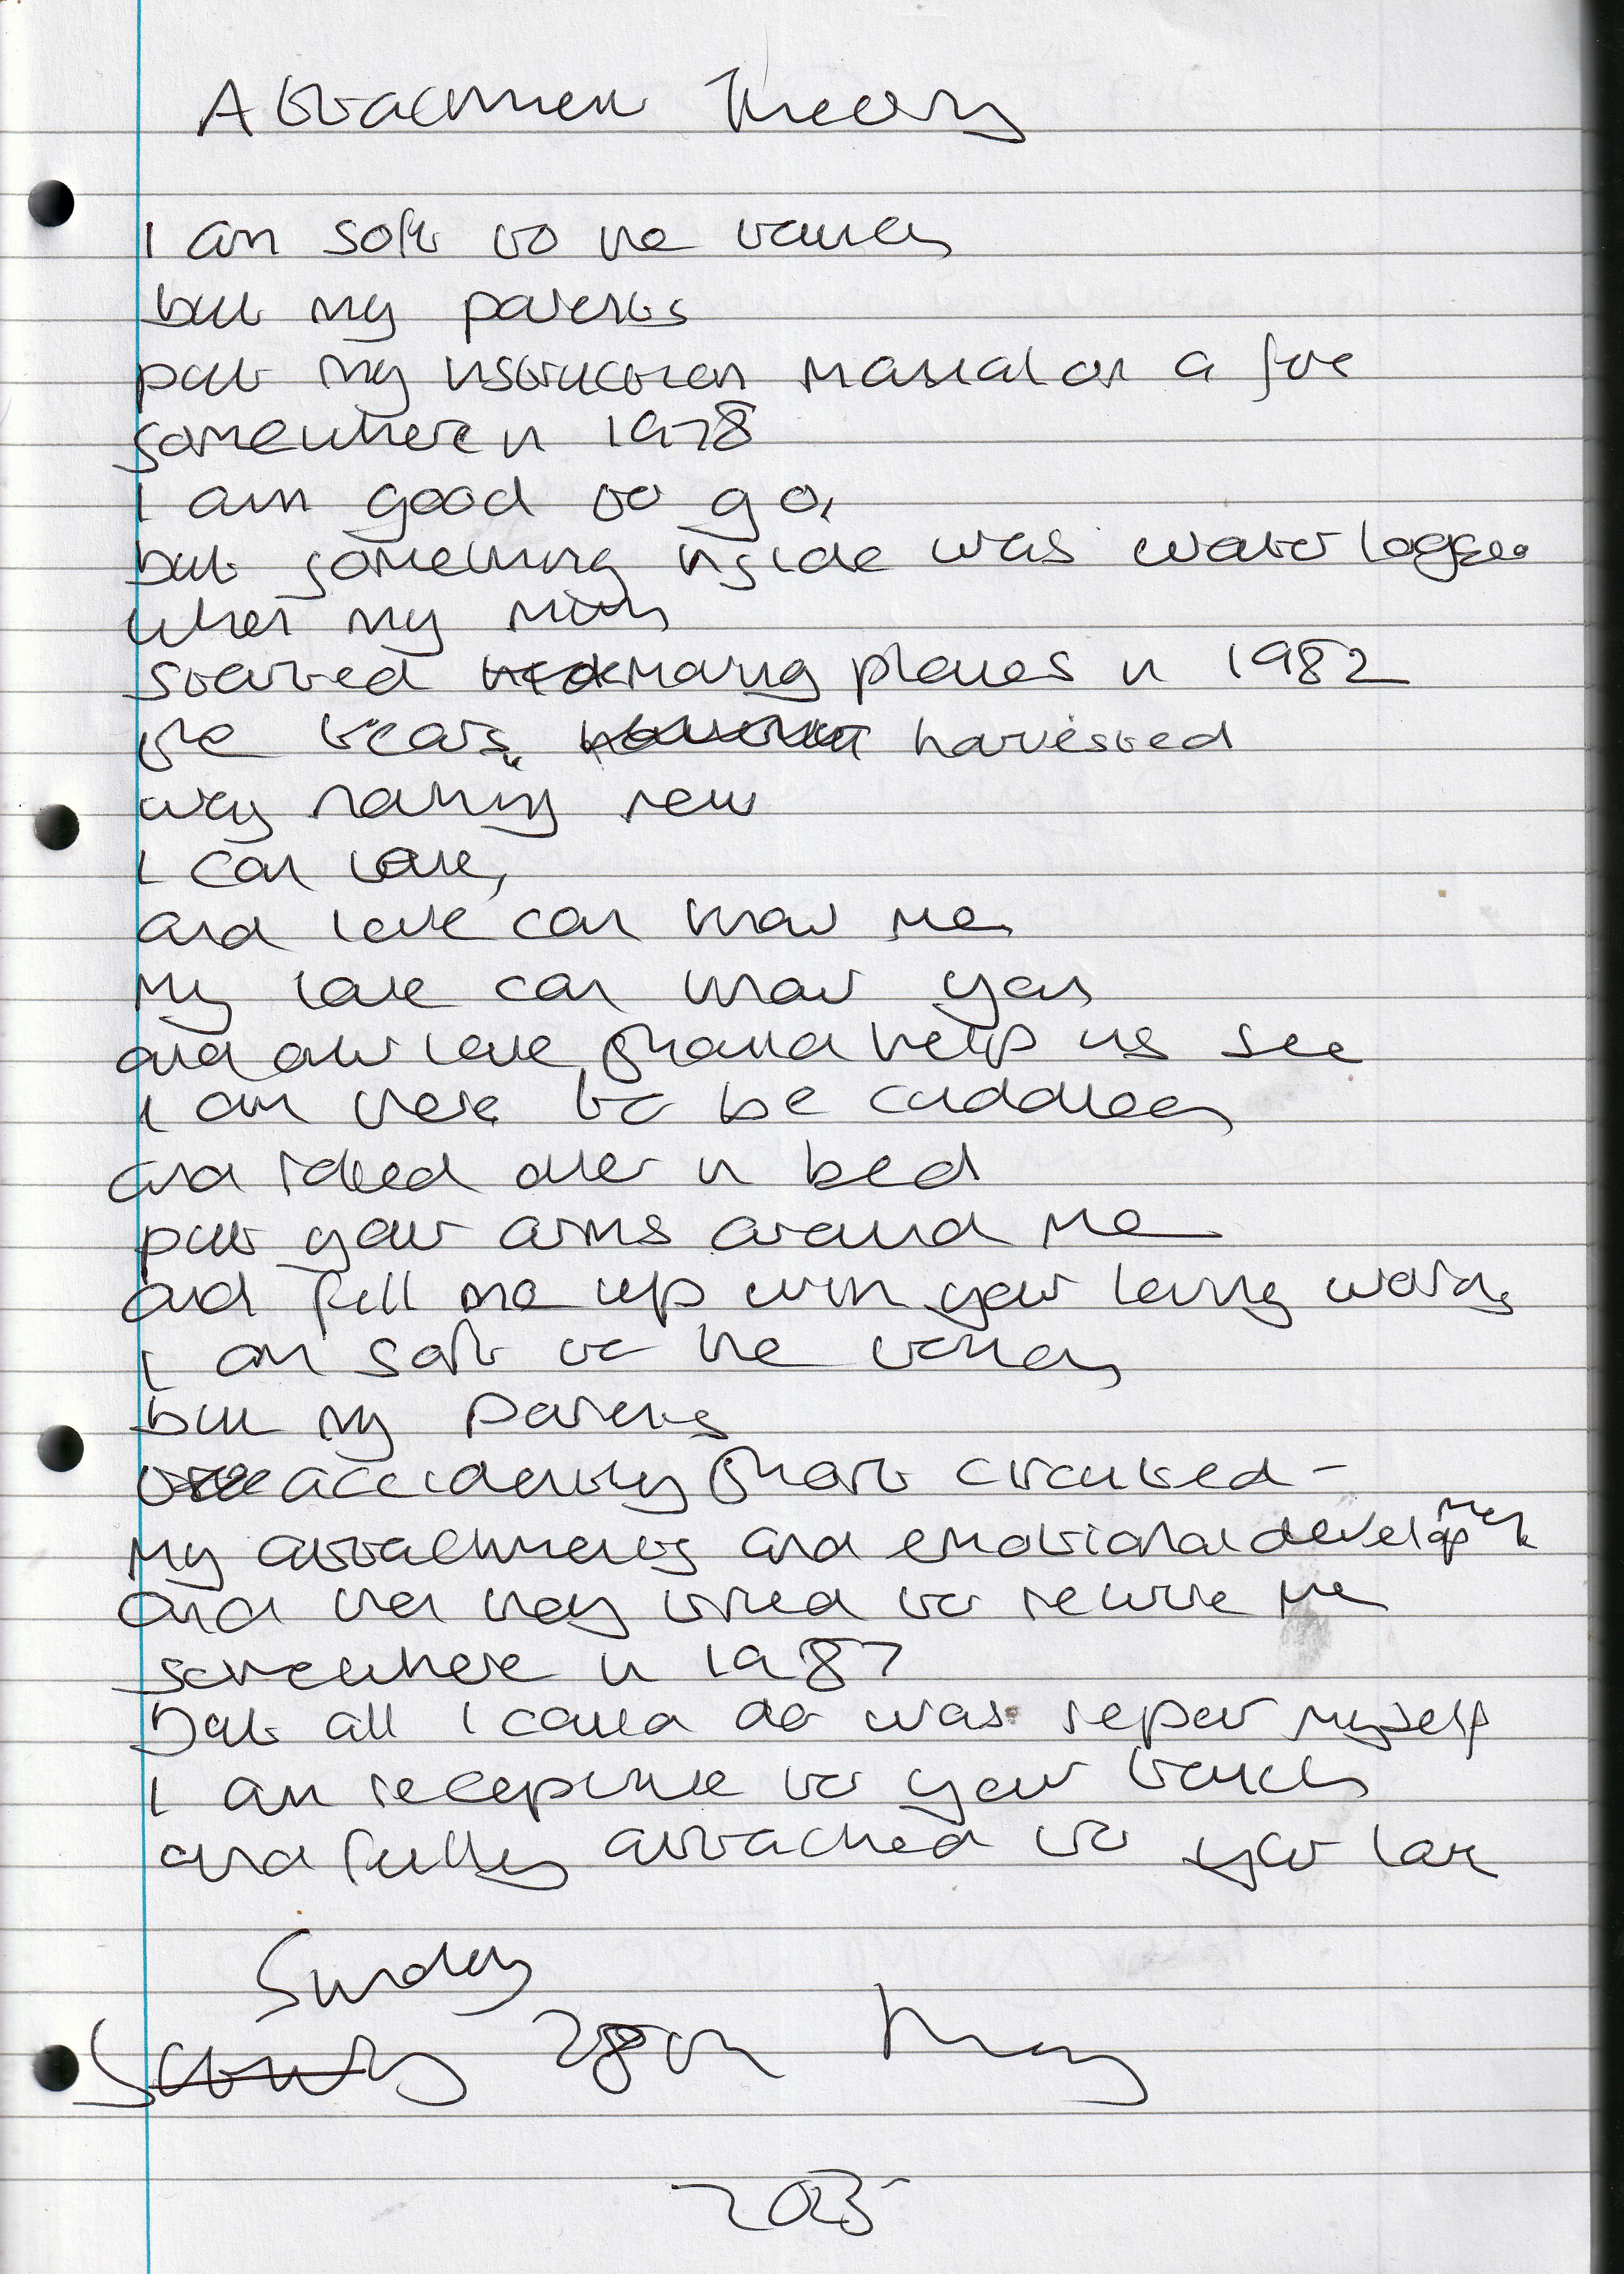 Attachment Theory
I am soft to the touch
but my parents
put my instruction manual on a fire
somewhere in 1978
I am good to go,
but something inside was water logged
when my mum
started making planes in 1982
the tears, harvested
way nothing new
I can love,
and love can know me
my love can know you
and our love should help us see
I am here to be cuddled
and rolled over in bed
put your arms around me
and fill me up with your loving words
I am soft to the touch
but my parents
accidently short circuited -
my attachments and emotional development
and then they tried to rewire me
somewhere in 1987
but all I could do was repair myself
I am receptive to your touch
and fully attached to your love
Sunday
28th May
2023